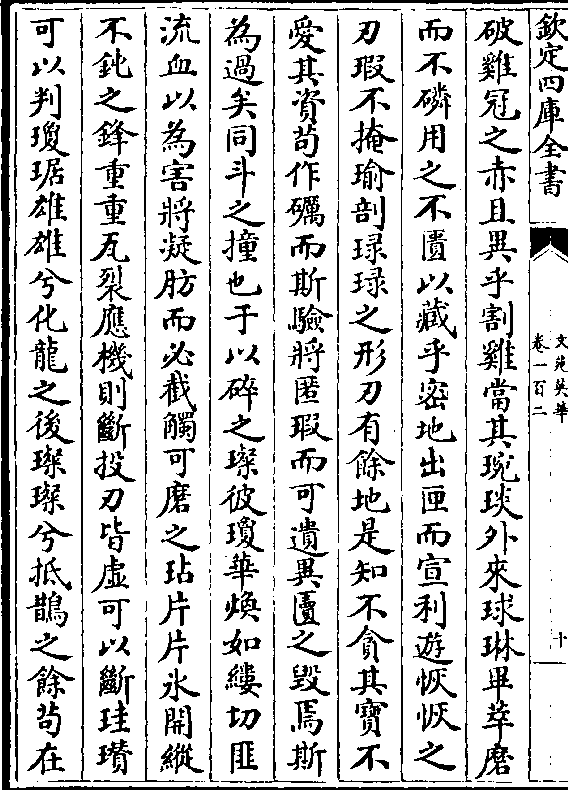 欽定四庫全書
文苑英華
卷一百二
十
破雞冠之赤且異乎割雞當其琬琰外來球琳畢萃磨
而不磷用之不匱以藏乎密地出匣而宣利遊恢恢之
刃瑕不掩瑜剖琭琭之形刃有餘地是知不貪其寶不
愛其資茍作礪而斯驗將匿瑕而可遺異匵之毀焉斯
為過矣同斗之撞也于以碎之璨彼瓊華煥如縷切匪
流血以為害將凝肪而必截觸可磨之玷片片氷開縱
不鈍之鋒重重瓦裂應機則斷投刃皆虛可以斷珪瓚
可以判瓊琚雄雄兮化龍之後璨璨兮抵鵲之餘茍在